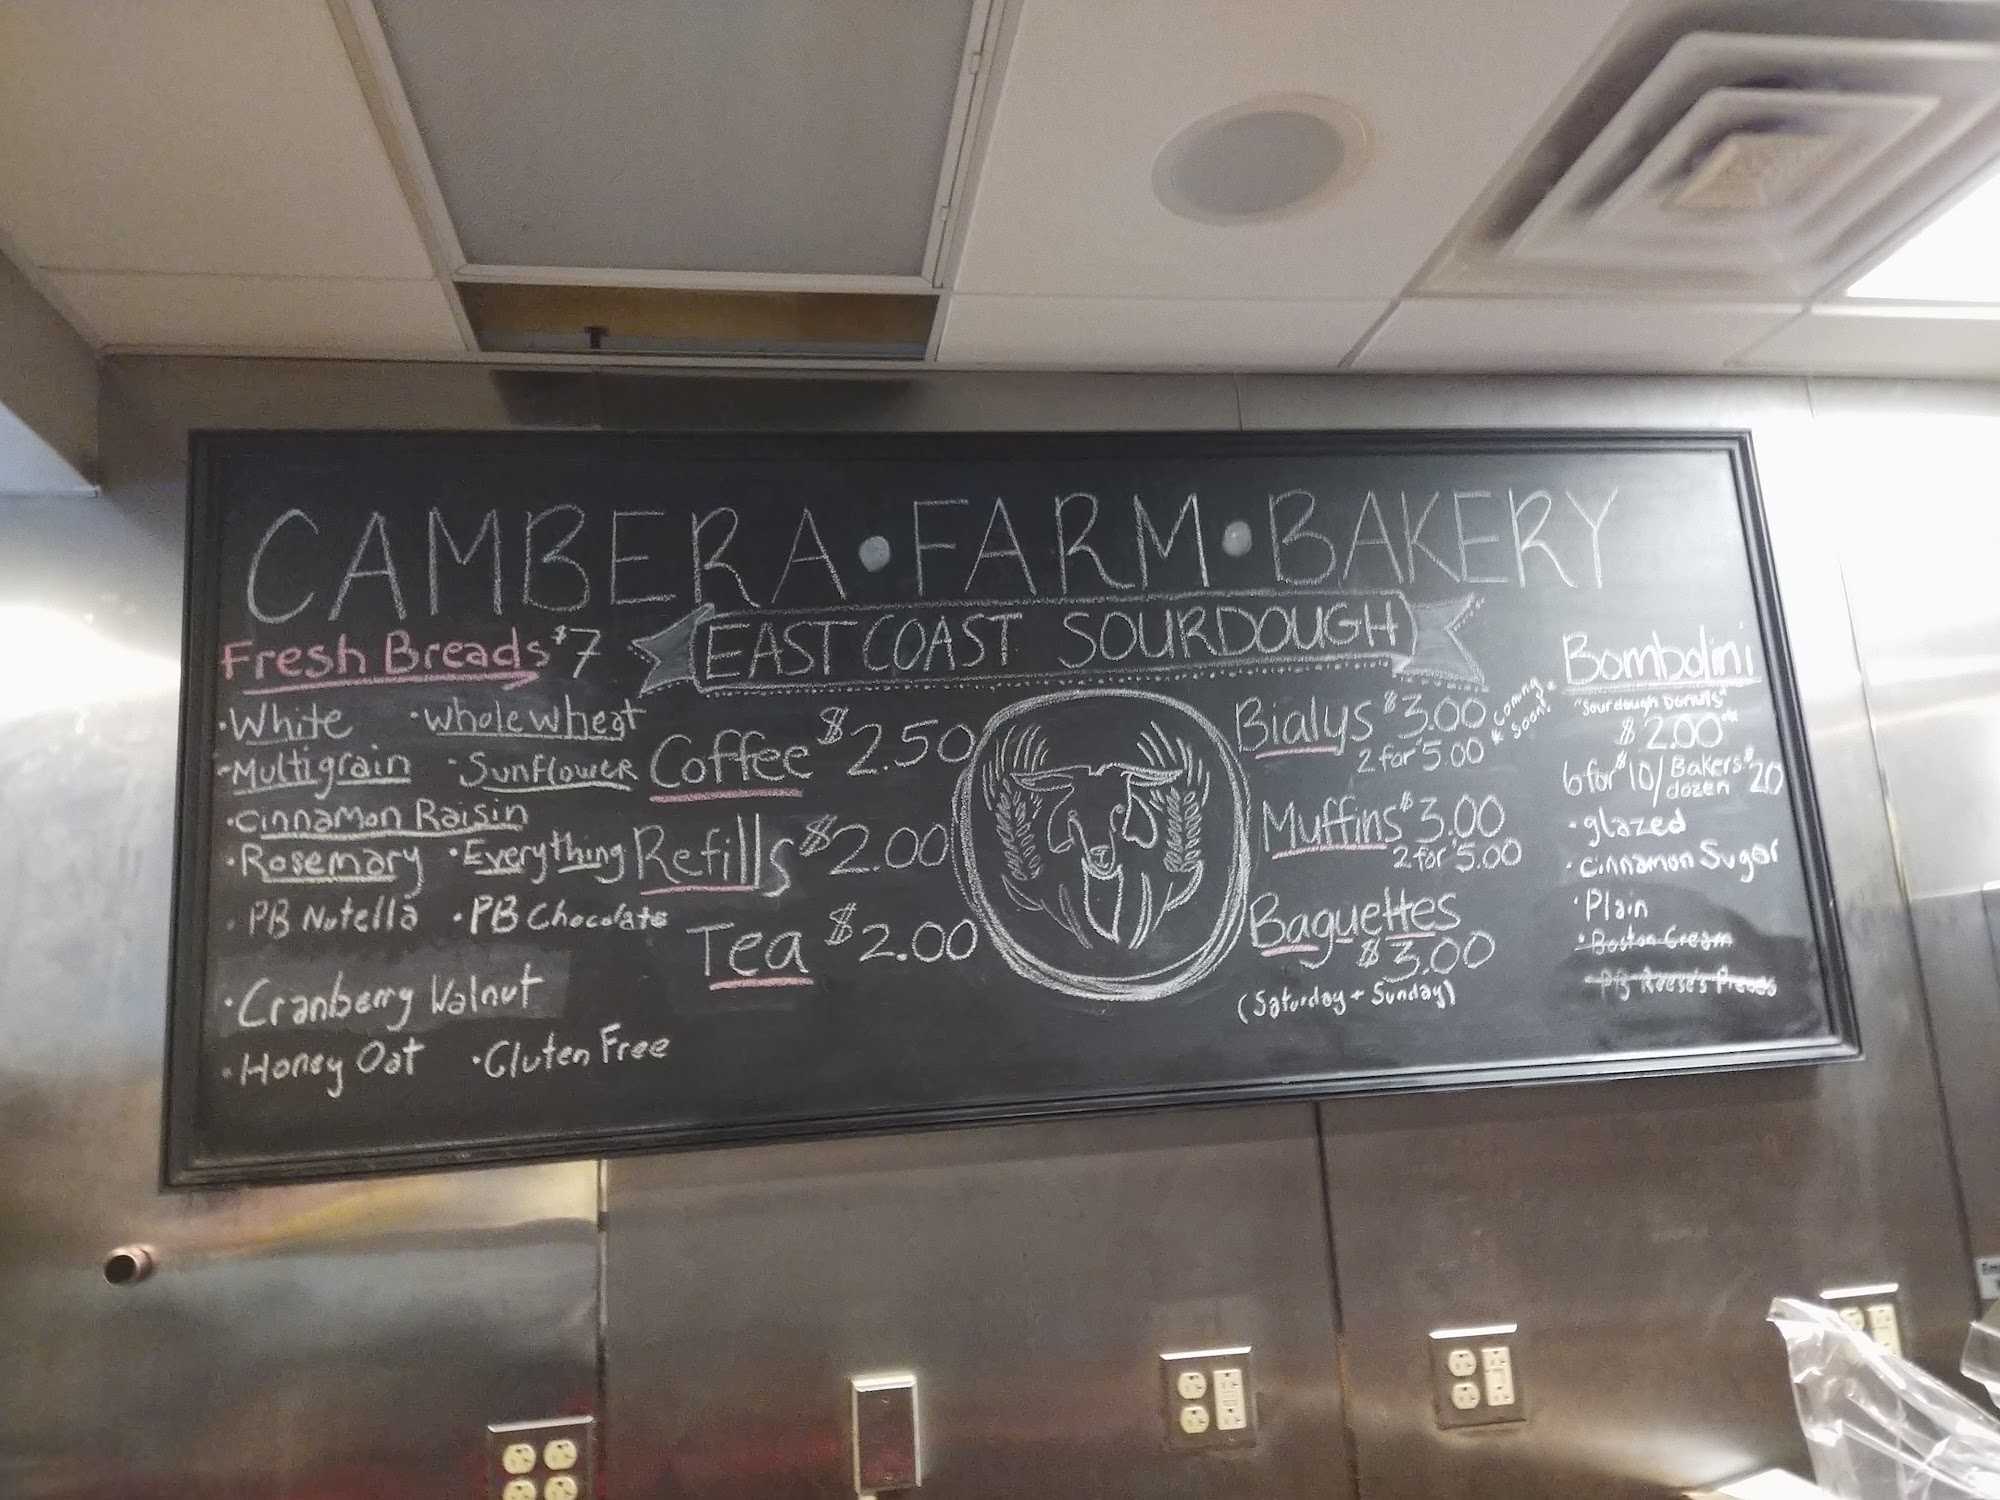 CAMBERA • FARM • BAKERY
EAST COAST SOURDOUGH
Fresh Breads $7
• White • whole wheat
• Multigrain • Sunflower
• cinnamon Raisin
• Rosemary • Everything
• PB Nutella • PB Chocolate
• Cranberry Walnut
• Honey Oat • Gluten Free
Coffee $2.50
Refills $2.00
Tea $2.00
Bialys $3.00
2 for $5.00
* Coming Soon! *
Muffins $3.00
2 for $5.00
Baguettes
$3.00
(Saturday + Sunday)
Bombolini
"Sourdough Donuts"
$2.00
6 for $10/ Bakers dozen $20
• glazed
• cinnamon Sugar
• Plain
• Boston Cream